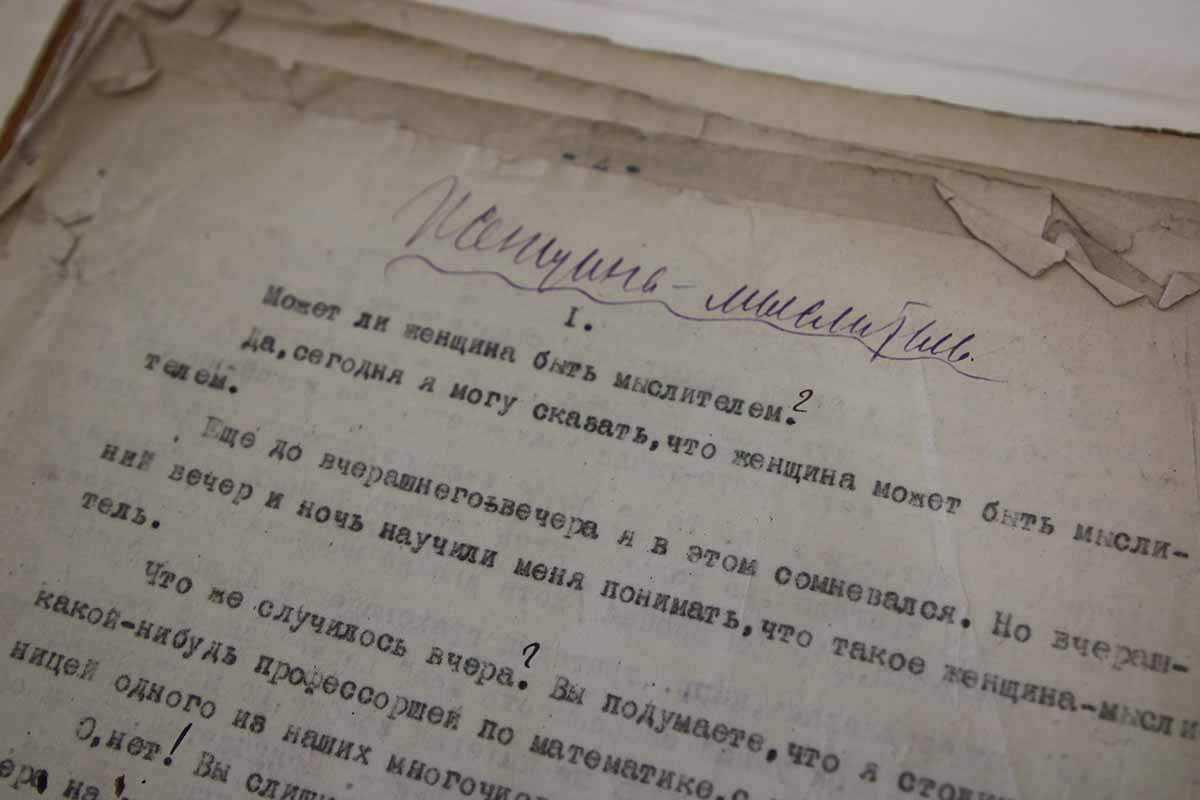 Женщина - мыслитель.
I.
Может ли женщина быть мыслителем?
Да, сегодня я могу сказать, что женщина может быть мысли-
телем.
Еще до вчерашнего вечера я в этом сомневался. Но вчераш-
ний вечер и ночь научили меня понимать, что такое женщина-мысли
тель.
Что же случилось вчера? Вы подумаете, что я
какой-нибудь профессоршей по математике, с
ницей одного из наших
О, нет! Вы
на